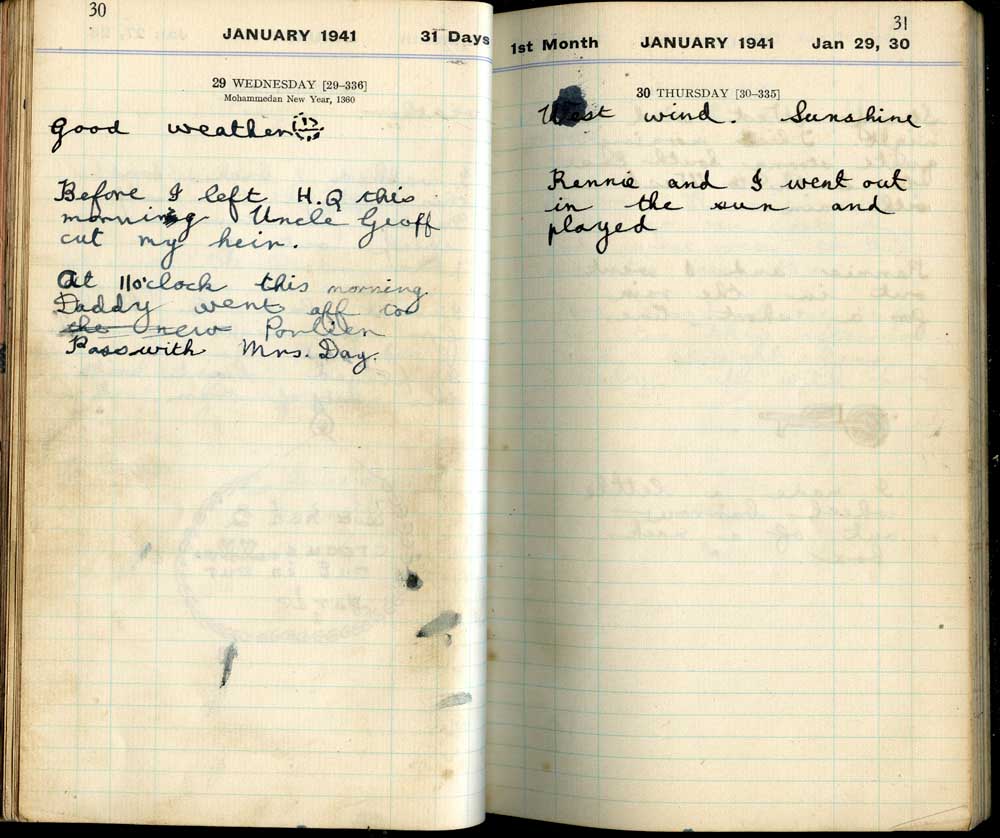 30
JANUARY 1941 31 Days
29 WEDNESDAY [29–336]
Mohammedan New Year, 1360
Good weather
Before I left H.Q this
morning Uncle Geoff
cut my heir.
At 11o'clock this morning
Daddy went off
the new
Pass with Mrs. Day.
31
1st Month JANUARY 1941 Jan 29, 30
30 THURSDAY [30–335]
West wind. Sunshine
Rennie and I went out
in the sun and
played